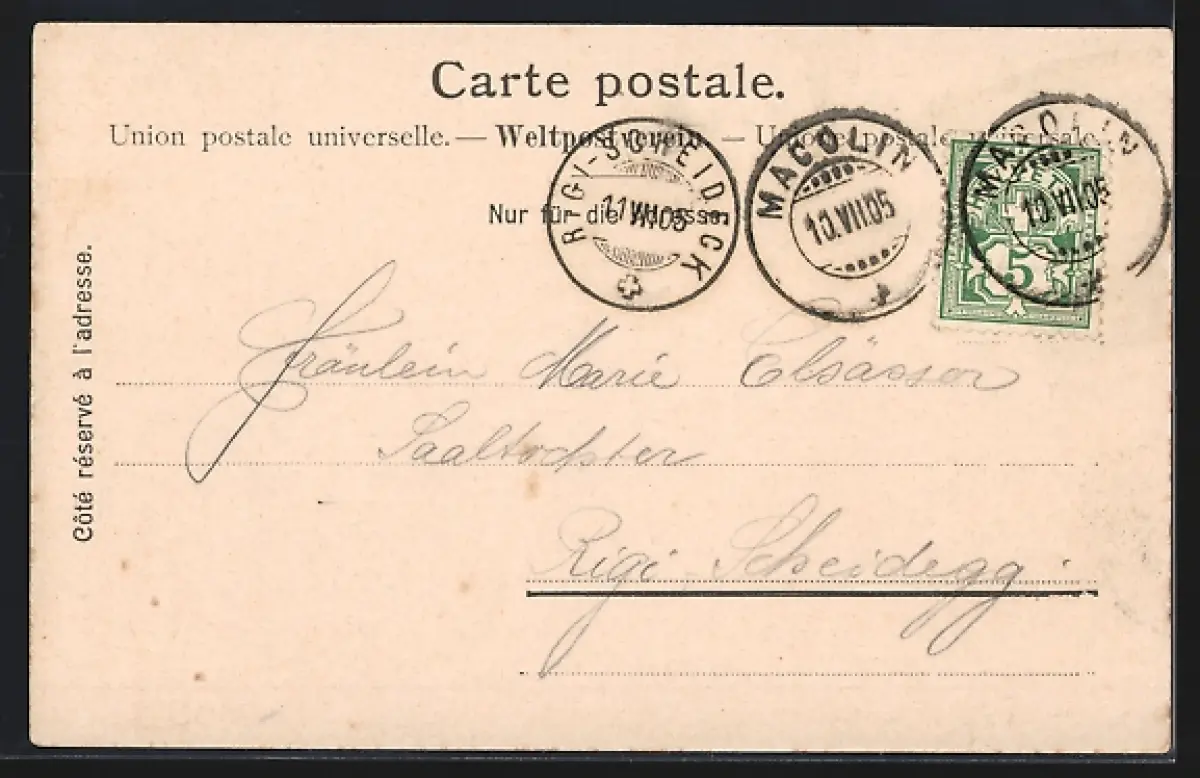 Carte postale.
Union postale universelle. — Weltpostverein — Unione postale universale.
Nur für die Adresse.
Côté réservé à l'adresse.
RIGI-SCHEIDECK
11.VII.05
MACOLIN
10.VII.05
MACOLIN
10.VII.05
5
Fräulein Marie Elsässer
Saaltochter
Rigi-Scheidegg.